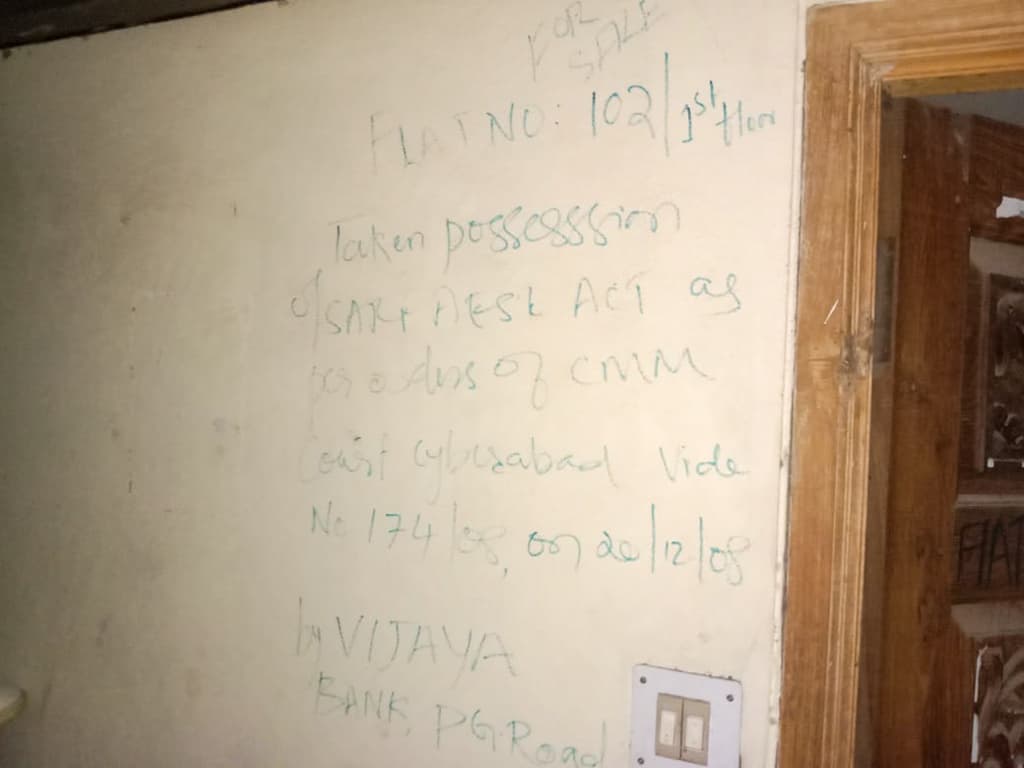 FOR
SALE
FLAT NO: 102/1st floor
Taken possesssion
of SARFAESI ACT as
per orders of CMM
Court Cyberabad Vide
No 174/08, on 20/12/08
by VIJAYA
BANK, PG.Road
FLAT